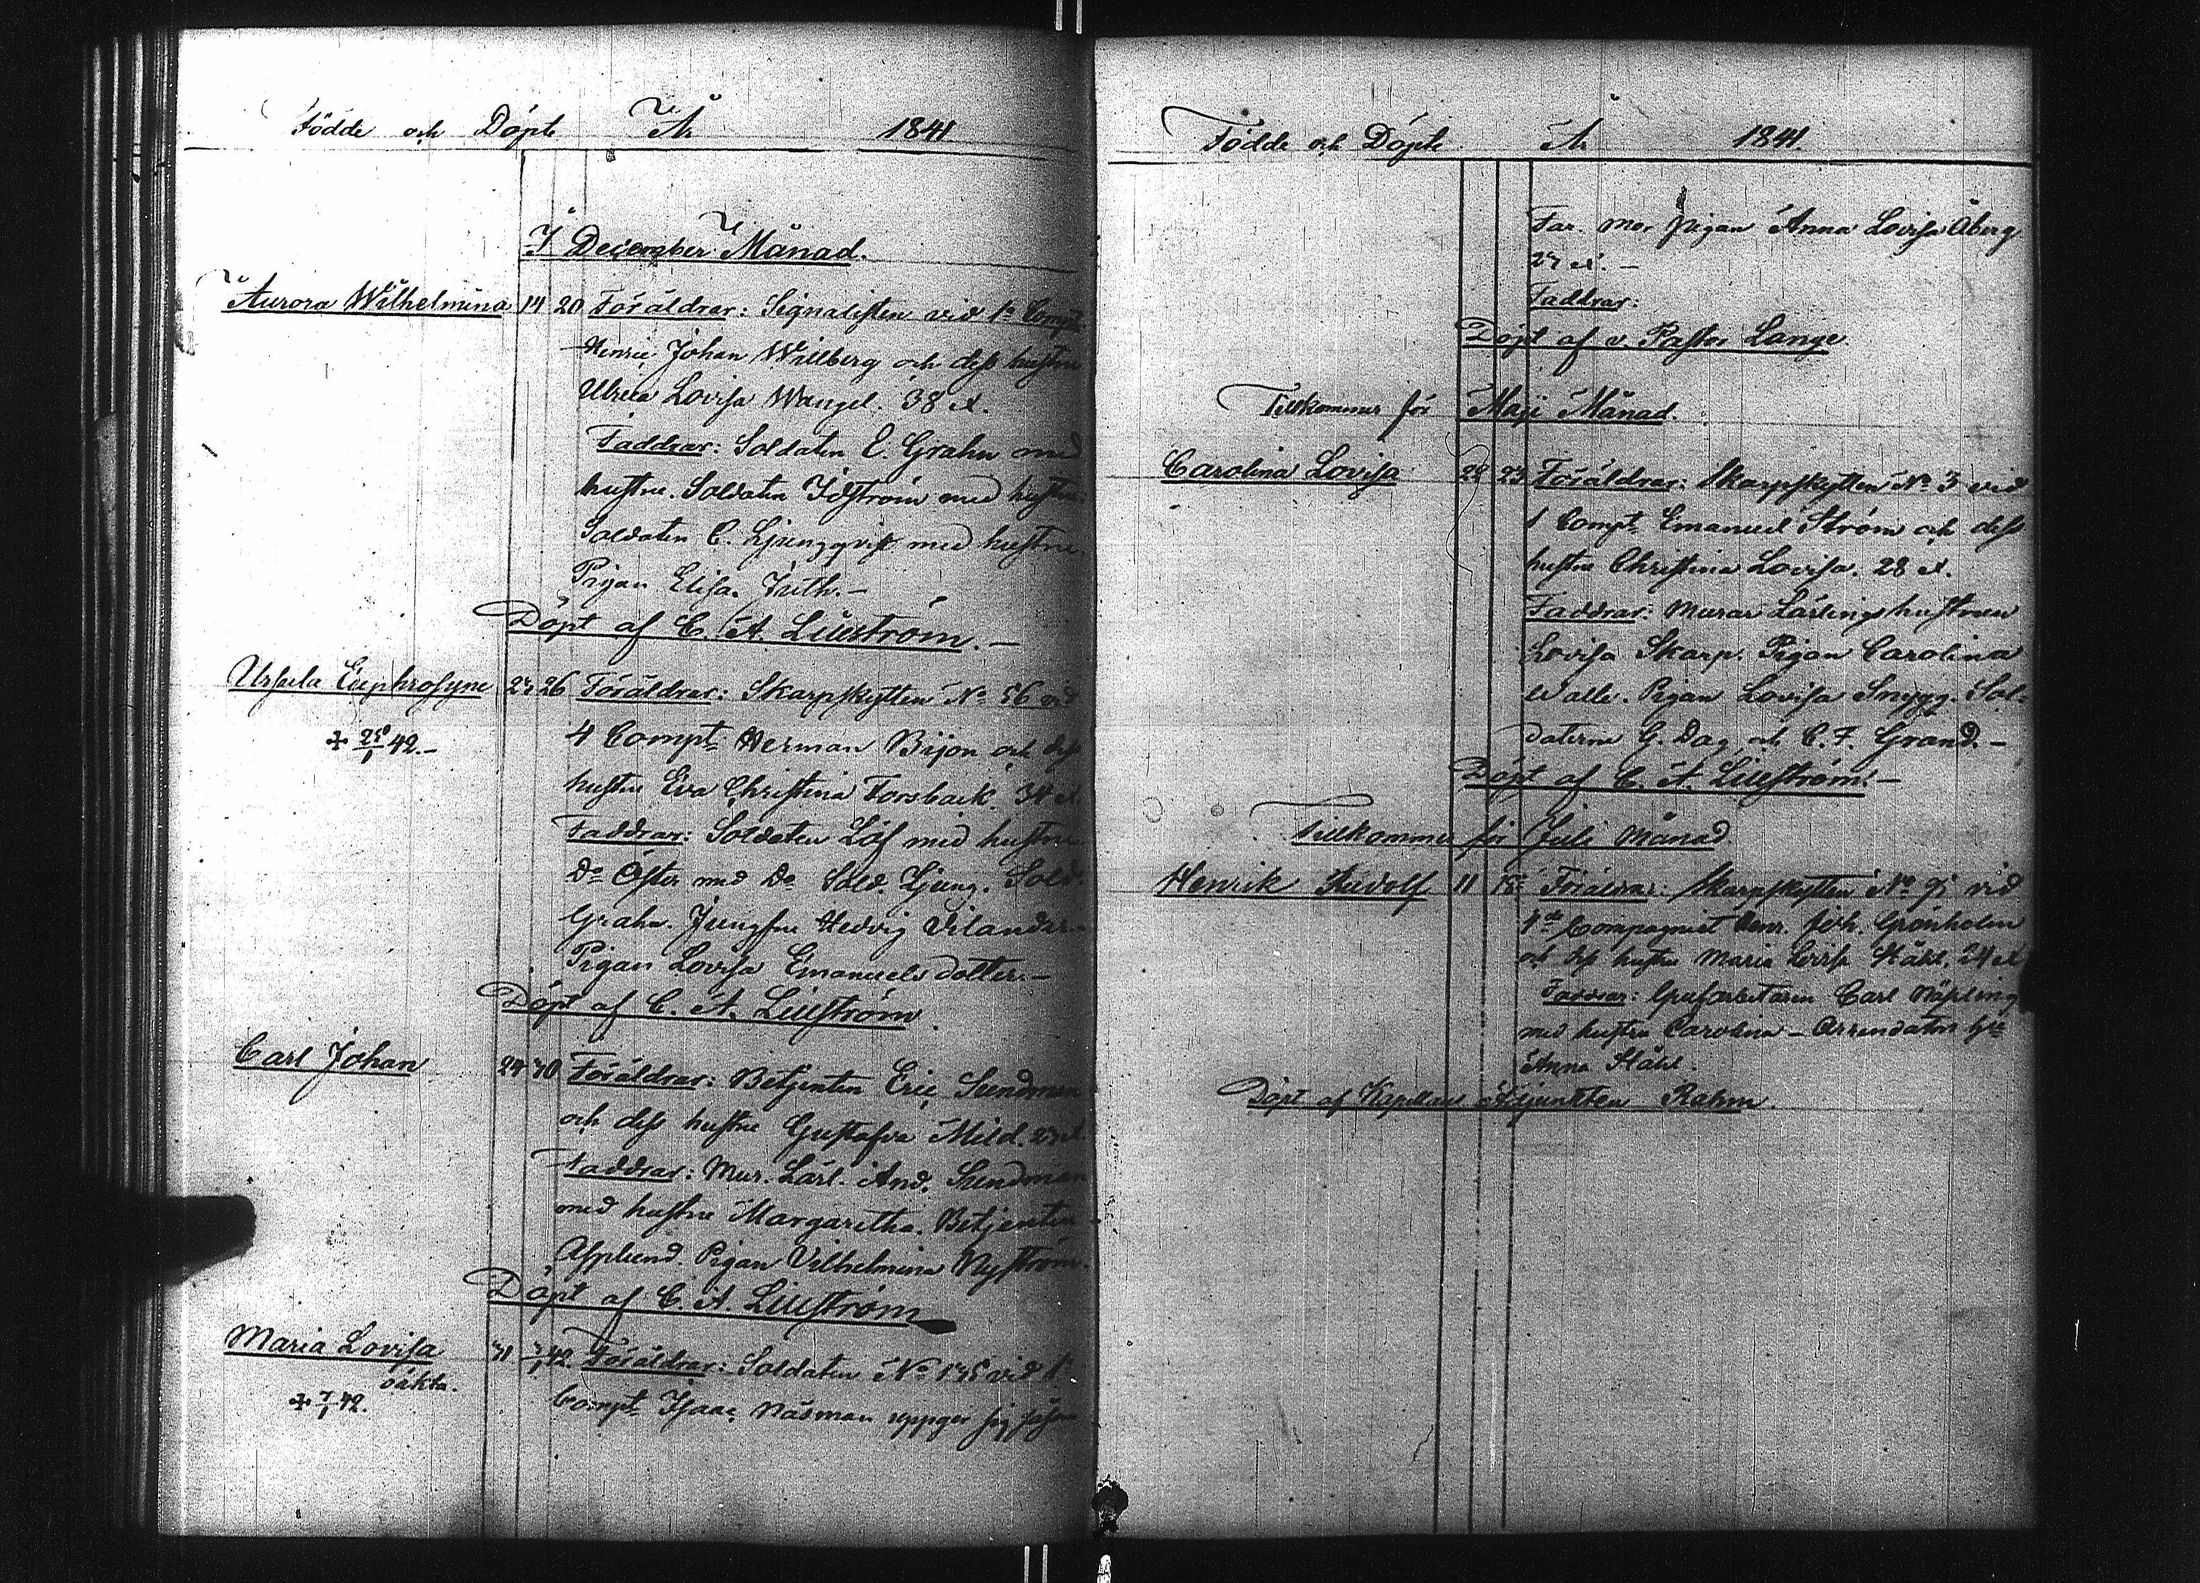 Födde och Döpte År 1841
I December Månad.
Aurora Wilhelmina 14 20 Föräldrar: Signalisten vid 1:a Compt.
Henric Johan Willberg och dess hustru
Ulrica Lovisa Wangel. 38 år.
Faddrar: Soldaten E. Grahn med
hustru. Soldaten Idström med hustru.
Soldaten C. Ljungqvist med hustru.
Pigan Elisa.
Döpt af C. A. Liliström. —
Ursula Euphrosyne 26 Föräldrar: Skarpskytten No 56 vid
4 Compt. Herman Bijon och dess
42. —
hustru Eva Christina Forsback. år.
Faddrar: Soldaten Löf med hustru
Do Öster med Do Sold. Ljung. Sold.
Grahn. Jungfru Hedvig
Pigan Lovisa Emanuels dotter. —
Döpt af C. A. Liliström.
Carl Johan 29 30 Föräldrar: Betjenten Eric Sundman
och dess hustru Gustafva Mild. 23 år.
Faddrar: Mur. Lärl. And. Sundman
med hustru Margaretha. Betjenten
Asplund. Pigan Vilhelmina Nyström.
Döpt af C. A. Liliström
Maria Lovisa 31 42. Föräldrar: Soldaten No vid 1
oäkta.
+ 7/1 42.
Compt. Isaac Näsman uppger sig såsom
Födde och Döpte År 1841.
Far. Mor Pigan Anna Lovisa Åberg
27 år. —
Faddrar:
Döpt af v. Pastor Lange
Tillkommer för Maji Månad.
Carolina Lovisa 23 Föräldrar: Skarpskytten No 3 vid
1 Compt. Emanuel Ström och dess
hustru Christina Lovisa. 28 år.
Faddrar: Murar Lärlings hustrun
Lovisa Skarp. Pigan Carolina
Walle. Pigan Lovisa Snygg. Sol-
daterne G. Dag och C. F. Grand. —
Döpt af C. A. Liliström. —
Tillkommer för Juli Månad.
Henrik Rudolf 11 Föräldrar: Skarpskytten No vid
1:ste Compagniet Henr. Joh. Grönholm
och dess hustru Maria Lovisa Ståhl. 24 år
Faddrar: Grufarbetaren Carl
med hustru Carolina — Arrendators
Anna Ståhl.
Döpt af Kapellans Adjunkten Rahm.